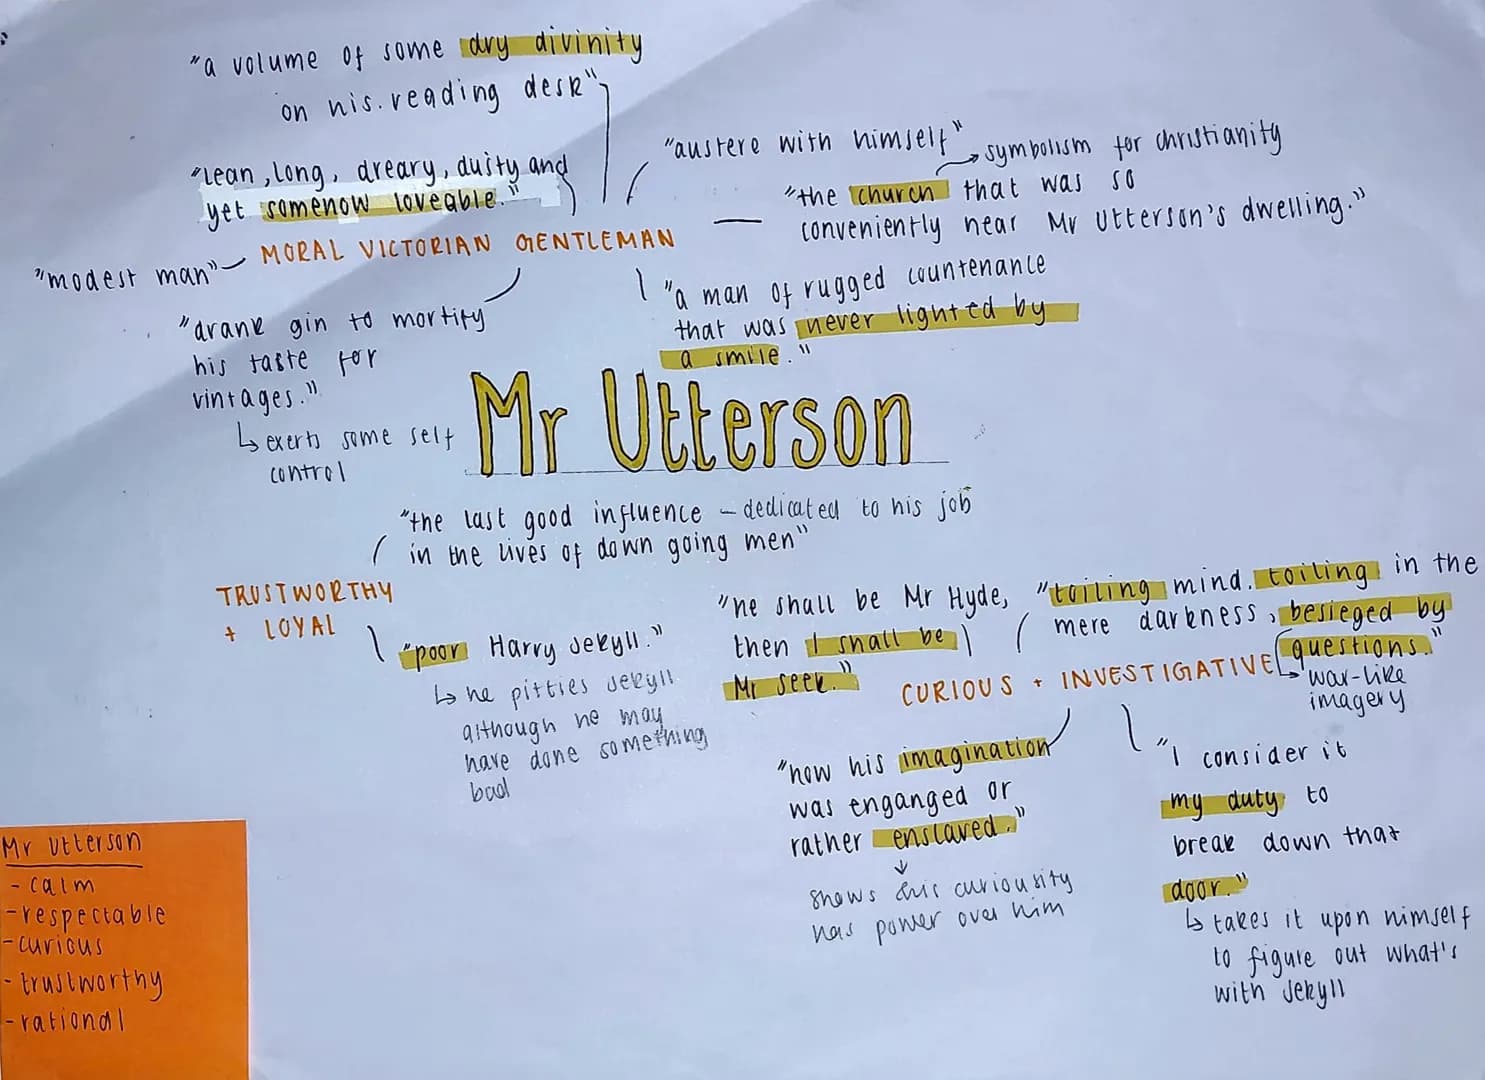 "a volume of some dry divinity
on his reading desk"
"lean, long, dreary, dusty and
yet somehow loveable."
"modest man"
MORAL VICTORIAN GENTLEMAN
"austere with himself"
symbolism for christianity
"the church that was so
conveniently near Mr Utterson's dwelling."
"drank gin to mortify
his taste for
vintages."
↳ exerts some self
control
"a man of rugged countenance
that was never lighted by
a smile."
Mr Utterson
"the last good influence - dedicated to his job
in the lives of down going men"
TRUSTWORTHY
+ LOYAL
"poor Harry Jekyll."
↳ he pitties Jekyll
although he may
have done something
bad
"he shall be Mr Hyde,
then I shall be
Mr seek."
"toiling mind. toiling in the
mere darkness, besieged by
questions."
↳ war-like
imagery
CURIOUS + INVESTIGATIVE
"how his imagination
was enganged or
rather enslaved."
↓
shows this curiousity
has power over him
"I consider it
my duty to
break down that
door."
↳ takes it upon himself
to figure out what's
with Jekyll
Mr Utterson
- calm
- respectable
- curious
- trustworthy
- rational